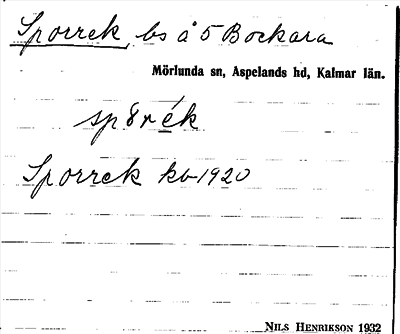 Sporrek, bs å 5 Bockara
Mörlunda sn, Aspelands hd, Kalmar län.
sp8rék
Sporrek kb 1920
NILS HENRIKSON 1932